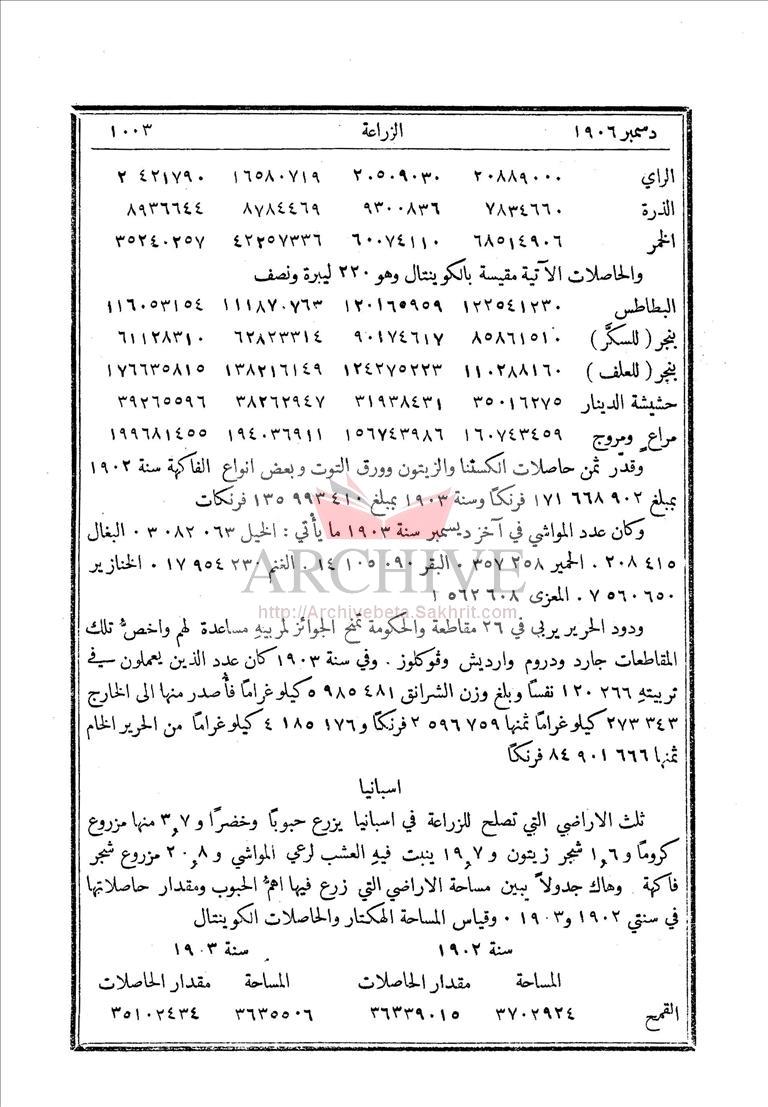 دسمبر ١٩٠٦ الزراعة ١٠٠٣
الراي ٢٠٨٨٩٠٠٠ ٢٠٥٠٩٠٣٠ ١٦٥٨٠٧١٩ ٢ ٤٢١٧٩٠
الذرة ٧٨٣٤٦٦٠ ٩٣٠٠٨٣٦ ٨٧٨٤٤٦٩ ٨٩٣٦٦٤٤
الخمر ٦٨٥١٤٩٠٦ ٦٠٠٧٤١١٠ ٤٢٢٥٧٣٣٦ ٣٥٢٤٠٢٥٧
والحاصلات الآتية مقيسة بالكوينتال وهو ٢٢٠ ليبرة ونصف
البطاطس ١٢٢٥٤١٢٣٠ ١٢٠١٦٥٩٥٩ ١١١٨٧٠٧٦٣ ١١٦٠٥٣١٥٤
بنجر (للسكَّر) ٨٥٨٦١٥١٠ ٩٠١٧٤٦١٧ ٦٢٨٢٣٣١٤ ٦١١٢٨٣١٠
بنجر (للعلف) ١١٠٢٨٨١٦٠ ١٢٤٢٧٥٢٢٣ ١٣٨٢١٦١٤٩ ١٧٦٦٣٥٨١٥
حشيشة الدينار ٣٥٠١٦٢٧٥ ٣١٩٣٨٤٣١ ٣٨٢٦٢٩٤٧ ٣٩٢٦٥٥٩٦
مراعٍ ومروج ١٦٠٧٤٣٤٥٩ ١٥٦٧٤٣٩٨٦ ١٩٤٠٣٦٩١١ ١٩٩٦٨١٤٥٥
وقدّر ثمن حاصلات الكستنا والزيتون وورق التوت وبعض انواع الفاكهة سنة ١٩٠٢
بمبلغ ٩٠٢ ٦٦٨ ١٧١ فرنكًا وسنة ١٩٠٣ بمبلغ ٤١٠ ٩٩٣ ١٣٥ فرنكات
وكان عدد المواشي في آخر ديسمبر سنة ١٩٠٣ ما يأْتي : الخيل ٠٦٣ ٠٨٢ ٣ ٠ البغال
٤١٥ ٢٠٨ ٠ الحمير ٢٥٨ ٣٥٧ ٠ البقر ٠٩٠ ١٠٥ ١٤ ٠ الغنم ٢٣٠ ٩٥٤ ١٧ ٠ الخنازير
٦٥٠ ٥٦٠ ٧ ٠ المعزى ٦٠٨ ٥٦٢ ١
ARCHIVE
http://Archivebeta.Sakhrit.com
ودود الحرير يربى في ٢٦ مقاطعة والحكومة تمنح الجوائز لمربيهِ مساعدة لهم واخصُّ تلك
المقاطعات جارد ودروم وارديش وڤوكلوز . وفي سنة ١٩٠٣ كان عدد الذين يعملون في
تربيتهِ ٢٦٦ ١٢٠ نفسًا وبلغ وزن الشرانق ٤٨١ ٩٨٥ ٥ كيلوغرامًا فأُصدر منها الى الخارج
٣٤٣ ٢٧٣ كيلوغرامًا ثمنها ٧٥٩ ٥٩٦ ٢ فرنكًا و ١٧٦ ١٨٥ ٤ كيلوغرامًا من الحرير الخام
ثمنها ٦٦٦ ٩٠١ ٨٤ فرنكًا
اسبانيا
ثلث الاراضي التي تصلح للزراعة في اسبانيا يزرع حبوبًا وخضرًا و ٣,٧ منها مزروع
كرومًا و ١,٦ شجر زيتون و ١٩,٧ ينبت فيهِ العشب لرعي المواشي و ٢٠,٨ مزروع شجر
فاكهة وهاك جدولاً يبين مساحة الاراضي التي زرع فيها اهمُّ الحبوب ومقدار حاصلاتها
في سنتي ١٩٠٢ و١٩٠٣ ٠ وقياس المساحة الهكتار والحاصلات الكوينتال
سنة ١٩٠٢ سنة ١٩٠٣
المساحة مقدار الحاصلات المساحة مقدار الحاصلات
القمح ٣٧٠٢٩٢٤ ٣٦٣٣٩٠١٥ ٣٦٣٥٥٠٦ ٣٥١٠٢٤٣٤